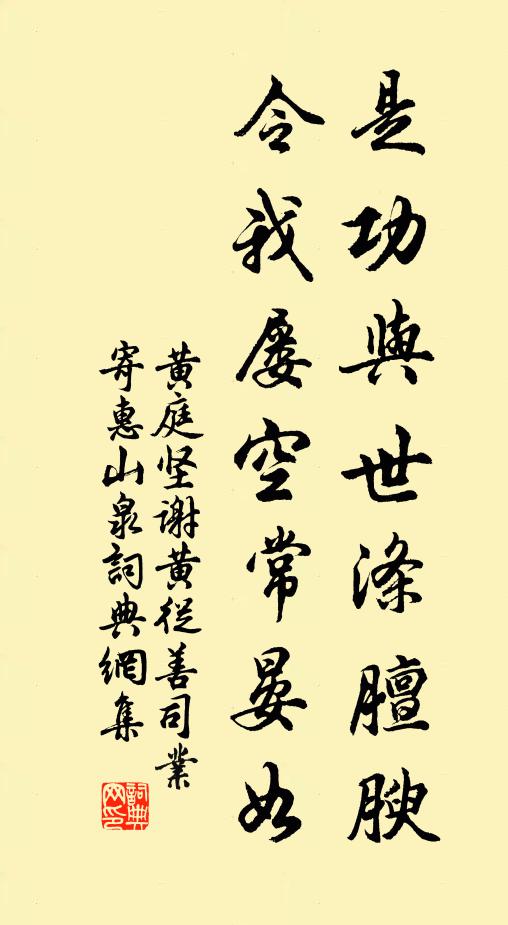 是功與世滌膻腴
令我屢空常晏如
黃庭坚謝黃從善司業
寄惠山泉詞典網集
詞典
网印